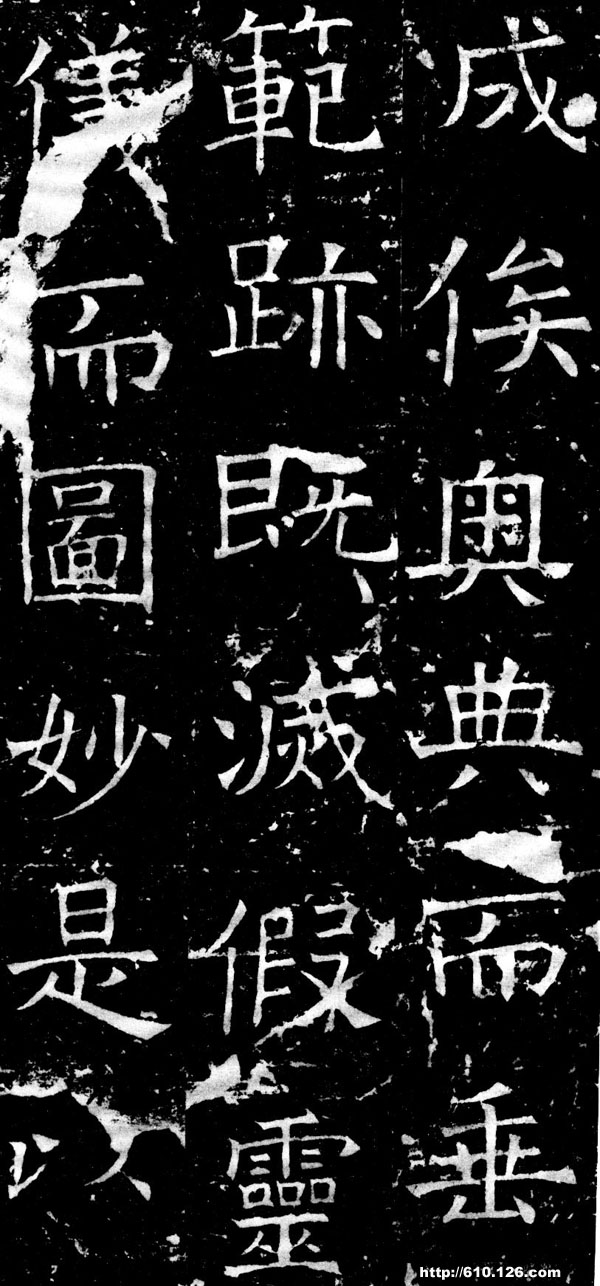 咸俟奧典而垂
範跡既滅假靈
儀而圖妙是以
http://610.126.com